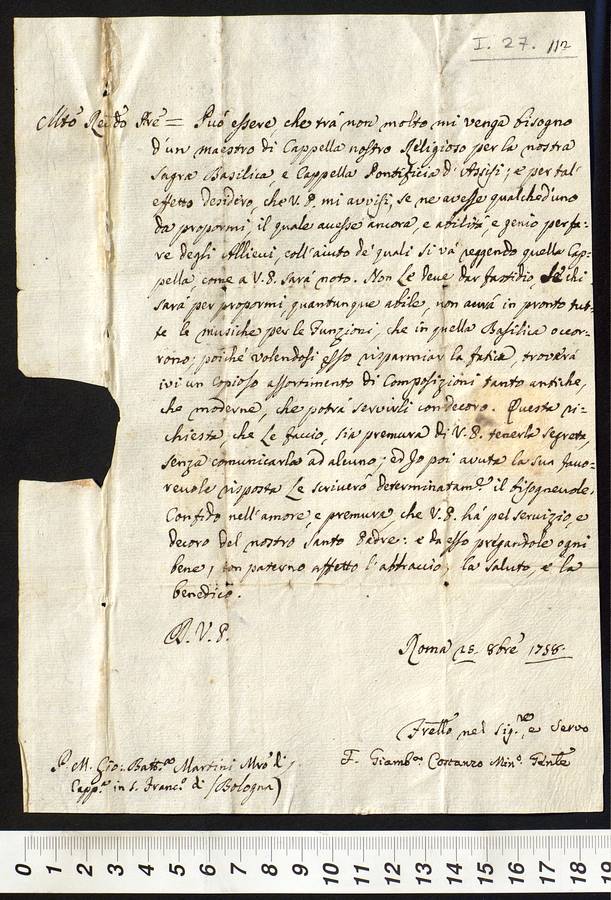 I. 27. 112
Mto Rendo Pre = Può essere, che trà non molto mi venga bisogno
d'un maestro di Cappella nostro Religioso per la nostra
Sagra Basilica e Cappella Pontificia d'Assisi; e per tal'
effetto desidero, che V. P. mi avvisi, se ne avesse qualched'uno
da propormi, il quale avesse ancora, e abilità, e genio per fa:
re degli Allievi, coll'aiuto de' quali si và reggendo quella Cap:
pella, come a V. P. sarà noto. Non Le deve dar fastidio, se chi
sarà per propormi, quantunque abile, non avrà in pronto tut:
te le musiche per le Funzioni, che in quella Basilica occor:
rono; poichè volendosi esso risparmiar la fatica, troverà
ivi un copioso assortimento di Composizioni tanto antiche,
che moderne, che potrà servirli con decoro. Questa ri:
chiesta, che Le faccio, sia premura di V. P. tenerla segreta,
senza comunicarla ad alcuno; ed Io poi avuta la sua favo:
revole risposta Le scriverò determinatam.e il bisognevole.
Confido nell'amore, e premura, che V. P. hà pel servizio, e
decoro del nostro Santo Padre: e da esso pregandole ogni
bene, con paterno affetto l'abbraccio, la saluto, e la
benedico.
D. V. P.
Roma 25. 8bre 1758.
Frello nel Sig.re e Servo
F. Giamb.a Costanzo Min.o Gen̄le
P. M. Gio: Batt.a Martini Mro di
Capp.a in S. Franc.o di (Bologna)
0 1 2 3 4 5 6 7 8 9 10 11 12 13 14 15 16 17 18 19